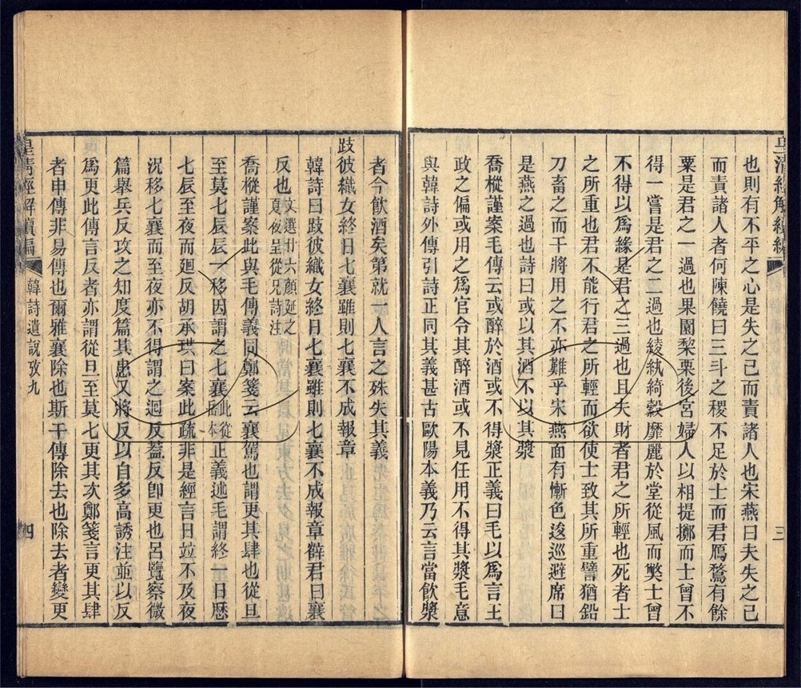 皇清經解續編
三
也則有不平之心是失之己而責諸人也宋燕曰夫失之己
而責諸人者何陳饒曰三斗之稷不足於士而君鴈鶩有餘
粟是君之一過也果園梨栗後宮婦人以相提擲而士曾不
得一嘗是君之二過也綾紈綺縠靡麗於堂從風而獘士曾
不得以爲緣是君之三過也且夫財者君之所輕也死者士
之所重也君不能行君之所輕而欲使士致其所重譬猶鉛
刀畜之而干將用之不亦難乎宋燕面有慚色逡巡避席曰
是燕之過也詩曰或以其酒不以其漿
喬樅謹案毛傳云或醉於酒或不得漿正義曰毛以爲言王
政之偏或用之爲官令其醉酒或不見任用不得其漿毛意
與韓詩外傳引詩正同其義甚古歐陽本義乃云言當飲漿
者今飲酒矣第就一人言之殊失其義
跂彼織女終日七襄雖則七襄不成報章
韓詩曰跂彼織女終日七襄雖則七襄不成報章薛君曰襄
反也文選廿六顏延之夏夜呈從兄詩注
喬樅謹案此與毛傳義同鄭箋云襄駕也謂更其肆也從旦
至莫七辰辰一移因謂之七襄此從正義述毛謂終一日歷
七辰至夜而廻反胡承珙曰案此疏非是經言日竝不及夜
況移七襄而至夜亦不得謂之迴反蓋反卽更也呂覽察微
篇舉兵反攻之知度篇其患又將反以自多高誘注並以反
爲更此傳言反者亦謂從旦至莫七更其次鄭箋言更其肆
者申傳非易傳也爾雅襄除也斯干傳除去也除去者變更
皇清經解續編
韓詩遺說攷九
四